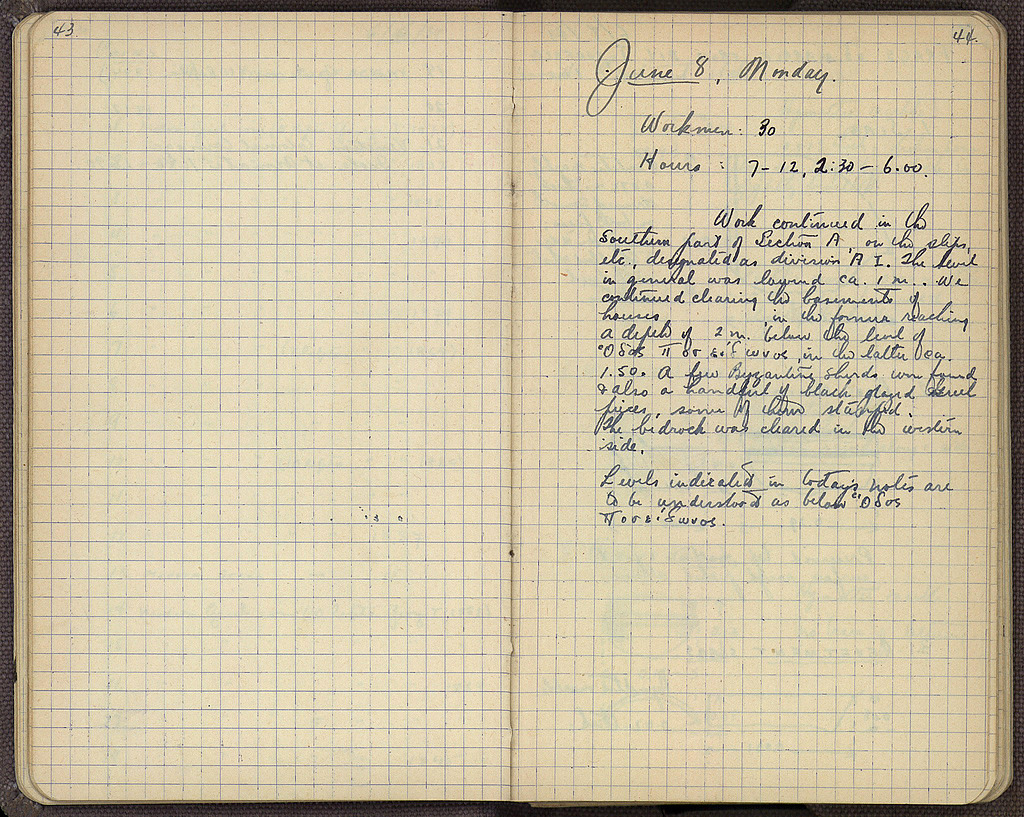 43
44.
June 8, Monday.
Workmen: 30
Hours : 7-12, 2:30 - 6.00.
Work continued in the
Southern part of Section A, on the
etc., designated as division A I. The level
in general was beyond ca. 1 m.. We
continued clearing the basements of
houses, in the former reaching
a depth of 2 m. below the level of
Ὁδὸς Ποσειδῶνος, in the latter ca.
1.50. A few Byzantine sherds were found
& also a handful of black glazed
pieces, some of them stamped.
The bedrock was cleared in the western
side.
Levels indicated in today's notes are
to be understood as below Ὁδὸς
Ποσειδῶνος.